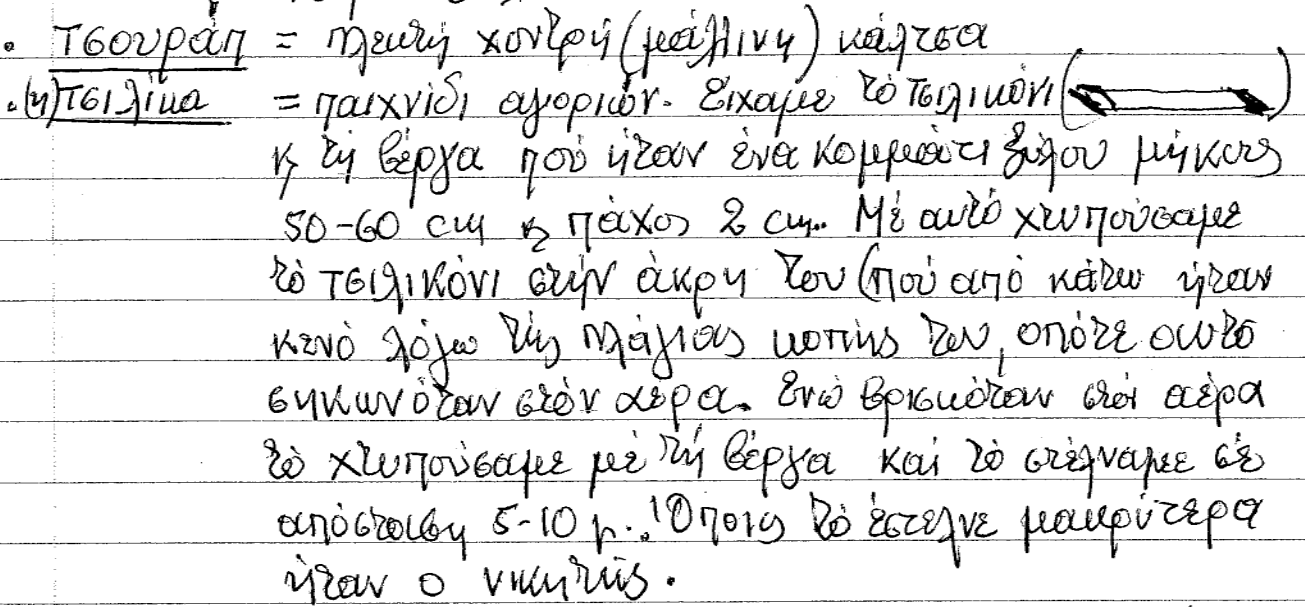 . τσουράπ = πλεκτή χοντρή (μάλλινη) κάλτσα
. (η) τσιλίκα = παιχνίδι αγοριών. Είχαμε τό τσιλικόνι ( )
κ τή βέργα πού ήταν ένα κομμάτι ξύλου μήκους
50-60 cm κ πάχος 2 cm. Μέ αυτό χτυπούσαμε
τό τσιλικόνι στήν άκρη του (πού από κάτω ήταν
κενό λόγω τής πλάγιας κοπής του, οπότε αυτό
σηκωνόταν στόν αέρα. Ενώ βρισκόταν στόν αέρα
τό χτυπούσαμε μέ τή βέργα καί τό στέλναμε σέ
απόσταση 5-10 μ.. Όποιος τό έστελνε μακρύτερα
ήταν ο νικητής.